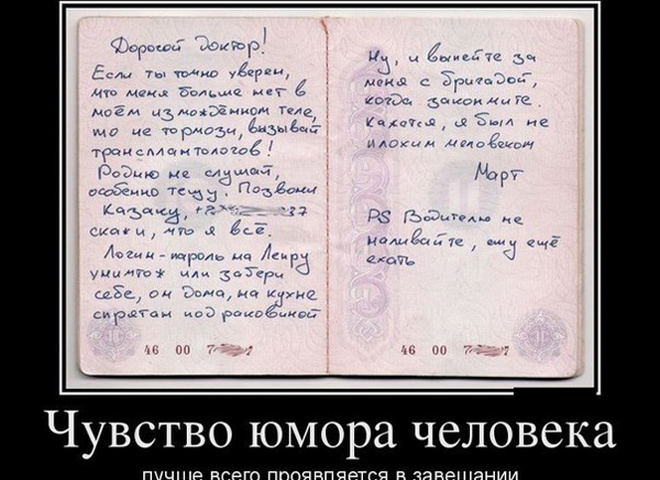 Дорогой Доктор!
Если ты точно уверен,
что меня больше нет в
моём измождённом теле,
то не тормози, вызывай
трансплантологов!
Родню не слушай,
особенно тещу. Позвони
Казаку, +7 37
скажи, что я всё.
Логин-пароль на Ленру
уничтож или забери
себе, он дома, на кухне
спрятан под раковиной
46 00 7
Ну, и выпейте за
меня с бригадой,
когда закончите.
Кажется, я был не
плохим человеком
Март
PS Водителю не
наливайте, ему ещё
ехать
46 00 7
Чувство юмора человека
лучше всего проявляется в завещании